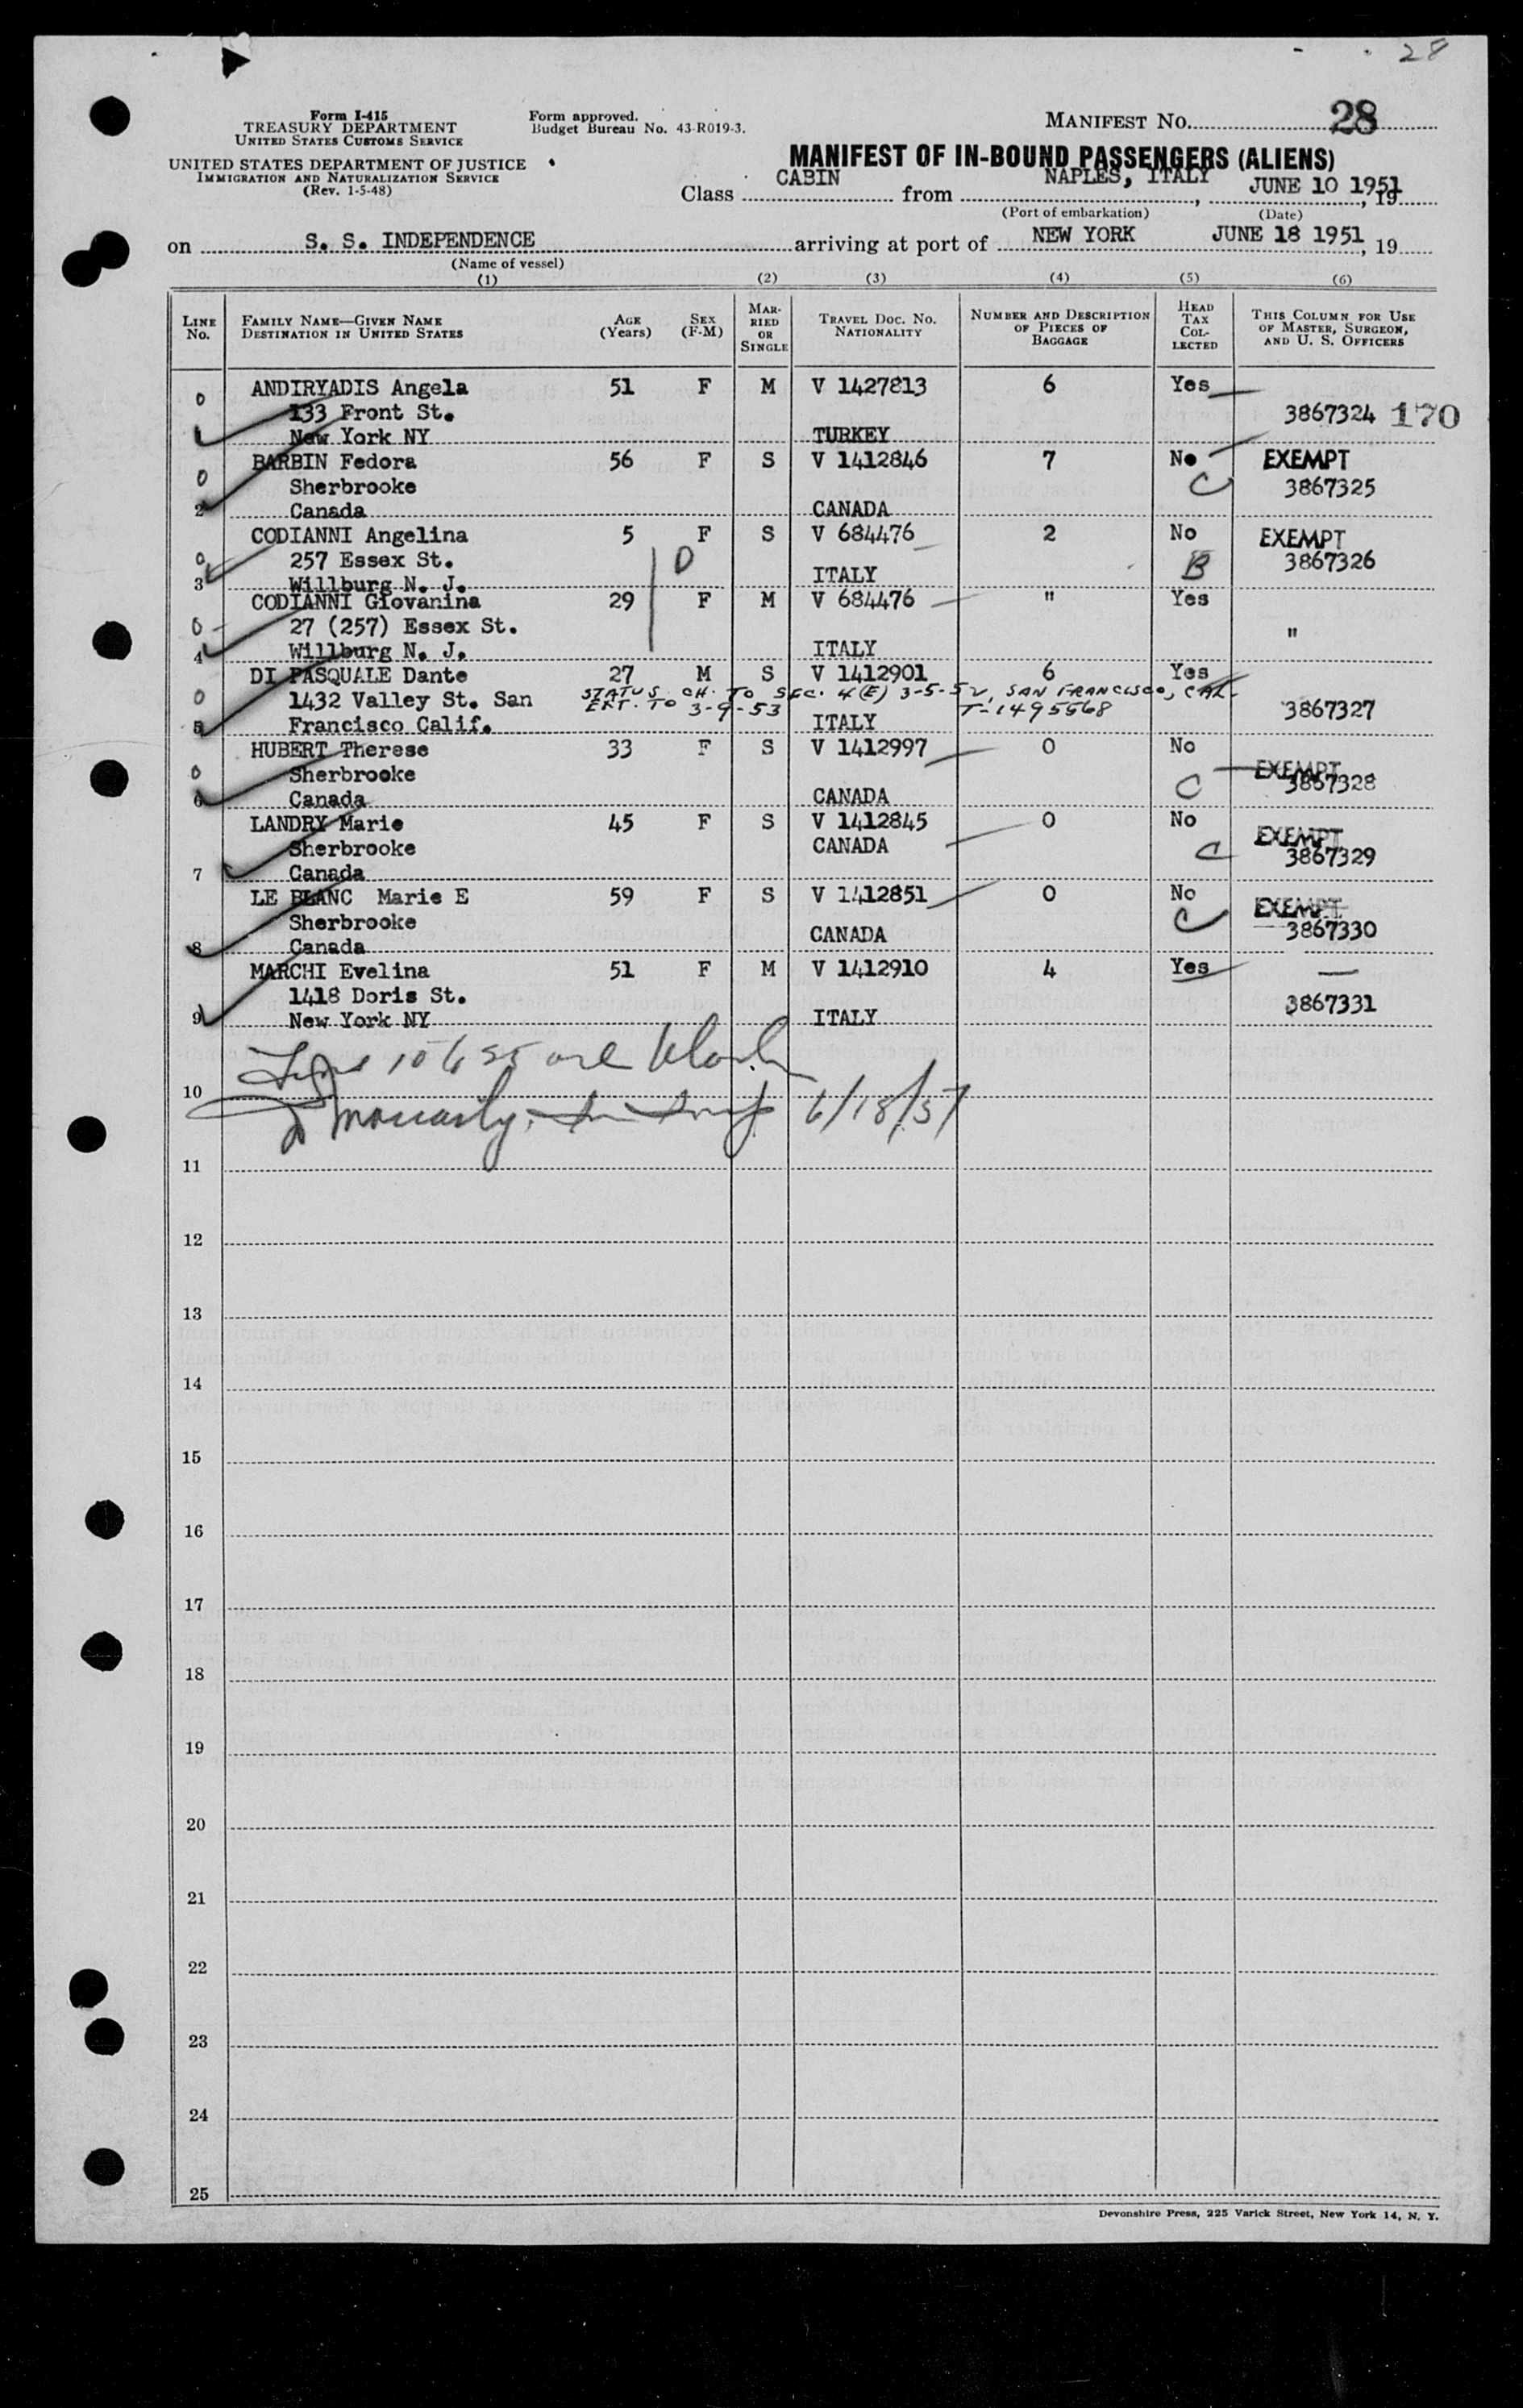 28
Form I-415
TREASURY DEPARTMENT
UNITED STATES CUSTOMS SERVICE
UNITED STATES DEPARTMENT OF JUSTICE
IMMIGRATION AND NATURALIZATION SERVICE
(Rev. 1-5-48)
Form approved.
Budget Bureau No. 43-R019-3.
MANIFEST No. 28
MANIFEST OF IN-BOUND PASSENGERS (ALIENS)
Class CABIN from NAPLES, ITALY, JUNE 10 1951, 19
(Port of embarkation) (Date)
on S. S. INDEPENDENCE arriving at port of NEW YORK JUNE 18 1951, 19
(Name of vessel)
(1) (2) (3) (4) (5) (6)
LINE No. FAMILY NAME—GIVEN NAME DESTINATION IN UNITED STATES AGE (Years) SEX (F-M) MARRIED OR SINGLE TRAVEL DOC. NO. NATIONALITY NUMBER AND DESCRIPTION OF PIECES OF BAGGAGE HEAD TAX COLLECTED THIS COLUMN FOR USE OF MASTER, SURGEON, AND U. S. OFFICERS
0 ANDIRYADIS Angela 51 F M V 1427813 6 Yes
133 Front St. 3867324 170
1 New York NY TURKEY
BARBIN Fedora 56 F S V 1412846 7 No EXEMPT
0 Sherbrooke C 3867325
2 Canada CANADA
CODIANNI Angelina 5 F S V 684476 2 No EXEMPT
0 257 Essex St. 0 B 3867326
3 Willburg N. J. ITALY
CODIANNI Giovanina 29 F M V 684476 " Yes
0 27 (257) Essex St. "
4 Willburg N. J. ITALY
DI PASQUALE Dante 27 M S V 1412901 6 Yes
STATUS CH. TO SEC. 4(E) 3-5-52, SAN FRANCISCO, CAL.
0 1432 Valley St. San EXT. TO 3-9-53 T-1495568 3867327
5 Francisco Calif. ITALY
HUBERT Therese 33 F S V 1412997 0 No
0 Sherbrooke C EXEMPT 3867328
6 Canada CANADA
LANDRY Marie 45 F S V 1412845 0 No EXEMPT
Sherbrooke CANADA C 3867329
7 Canada
LE BLANC Marie E 59 F S V 1412851 0 No EXEMPT
Sherbrooke C 3867330
8 Canada CANADA
MARCHI Evelina 51 F M V 1412910 4 Yes —
1418 Doris St. 3867331
9 New York NY ITALY
Lines 10 to 25 are blank
10
6/18/51
11
12
13
14
15
16
17
18
19
20
21
22
23
24
25
Devonshire Press, 225 Varick Street, New York 14, N. Y.